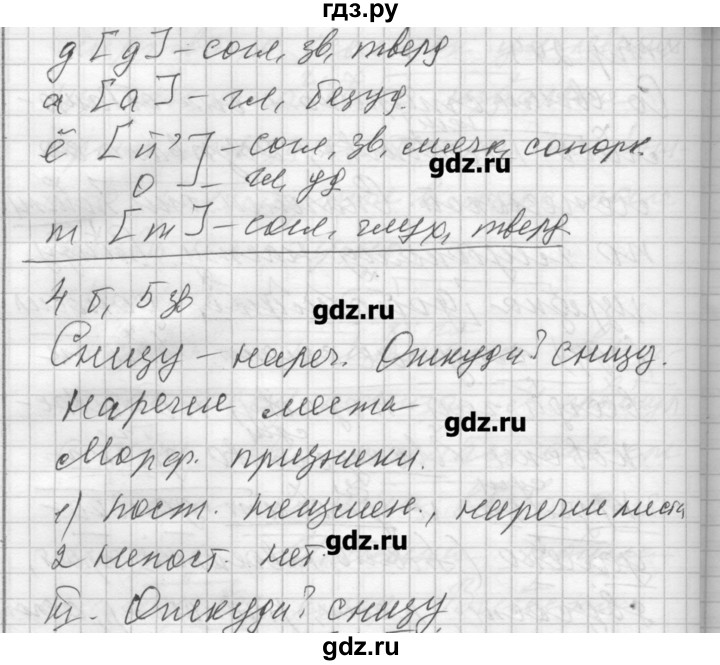 гдз.ру
д [д] – согл, зв, тверд
а [а] – гл, безуд.
ё [й'] – согл, зв, мягк, сонорн.
о] – гл, уд
gdz.ru
т [т] – согл, глух, тверд
4 б, 5 зв
gdz.ru
Снизу – нареч. Откуда? снизу.
наречие места
gdz.ru
Морф. признаки.
1) пост. неизмен., наречие места
gdz.ru
2 непост. нет.
III. Откуда? снизу
gdz.ru